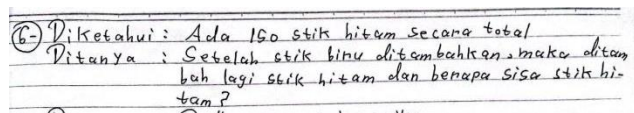 6-) Diketahui : Ada 150 stik hitam secara total
Ditanya : Setelah stik biru ditambahkan, maka ditam
bah lagi stik hitam dan berapa sisa stik hi-
tam?